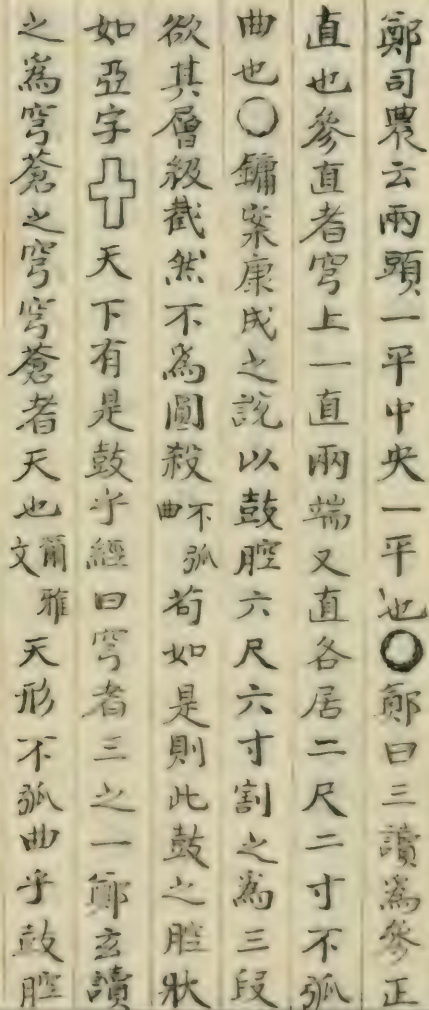 鄭司農云兩頭一平中央一平也〇鄭曰三讀為參正
直也參直者穹上一直兩端又直各居二尺二寸不弧
曲也〇鏞案康成之說以鼓腔六尺六寸割之為三段
欲其層級截然不為圓殺不弧曲苟如是則此鼓之腔狀
如亞字天下有是鼓乎經曰穹者三之一鄭玄讀
之為穹蒼之穹穹蒼者天也爾雅文天形不弧曲乎鼓腔